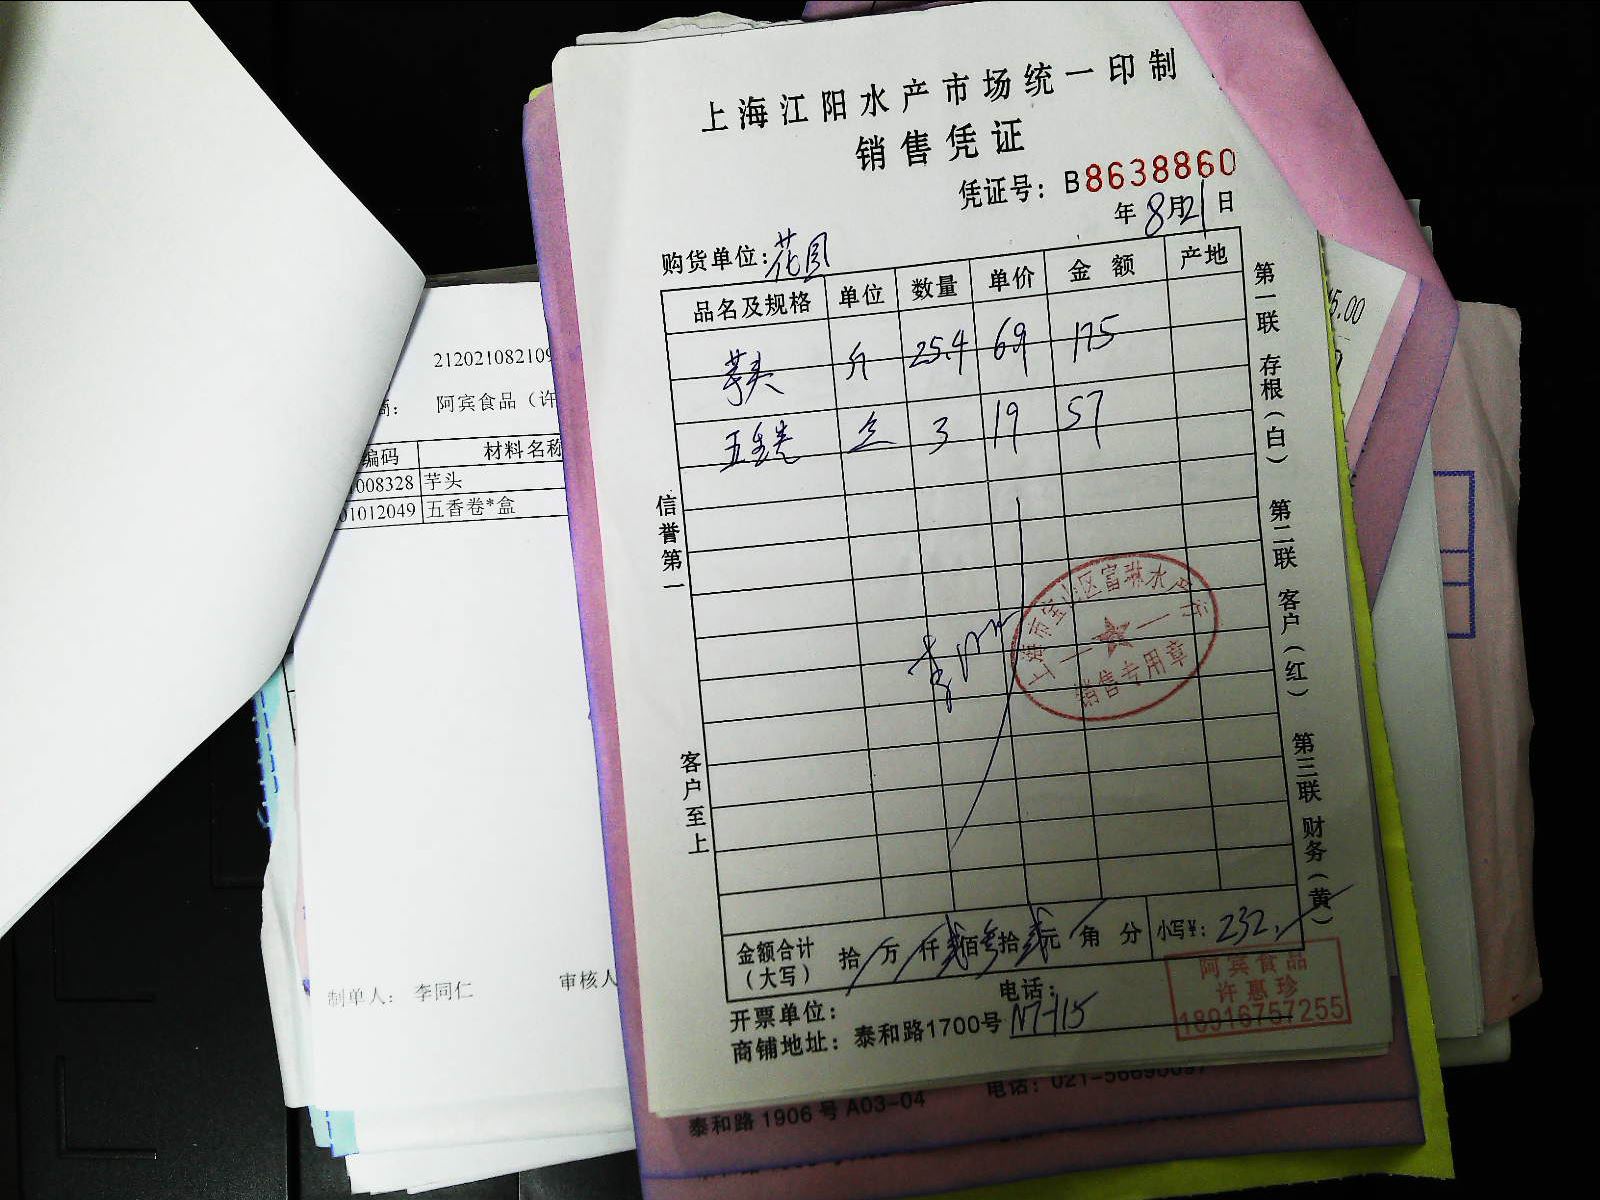 上海江阳水产市场统一印制
销售凭证
凭证号：B8638860
年 8月21日
购货单位：花园
品名及规格 单位 数量 单价 金额 产地
芋头 斤 25.4 6.9 175
五香卷 盒 3 19 57
信誉第一
客户至上
第一联 存根（白） 第二联 客户（红） 第三联 财务（黄）
上海市宝山区富琳水产行
销售专用章
金额合计（大写） 拾 万 仟 贰佰 叁拾 贰元 角 分 小写¥：232.
开票单位： 电话：
商铺地址：泰和路1700号 N7-115
阿宾食品
许惠珍
18916757255
212021082109
阿宾食品（许
编码 材料名称
008328 芋头
01012049 五香卷*盒
制单人： 李同仁 审核人
5.00
泰和路1906号A03-04 电话：021-56690097